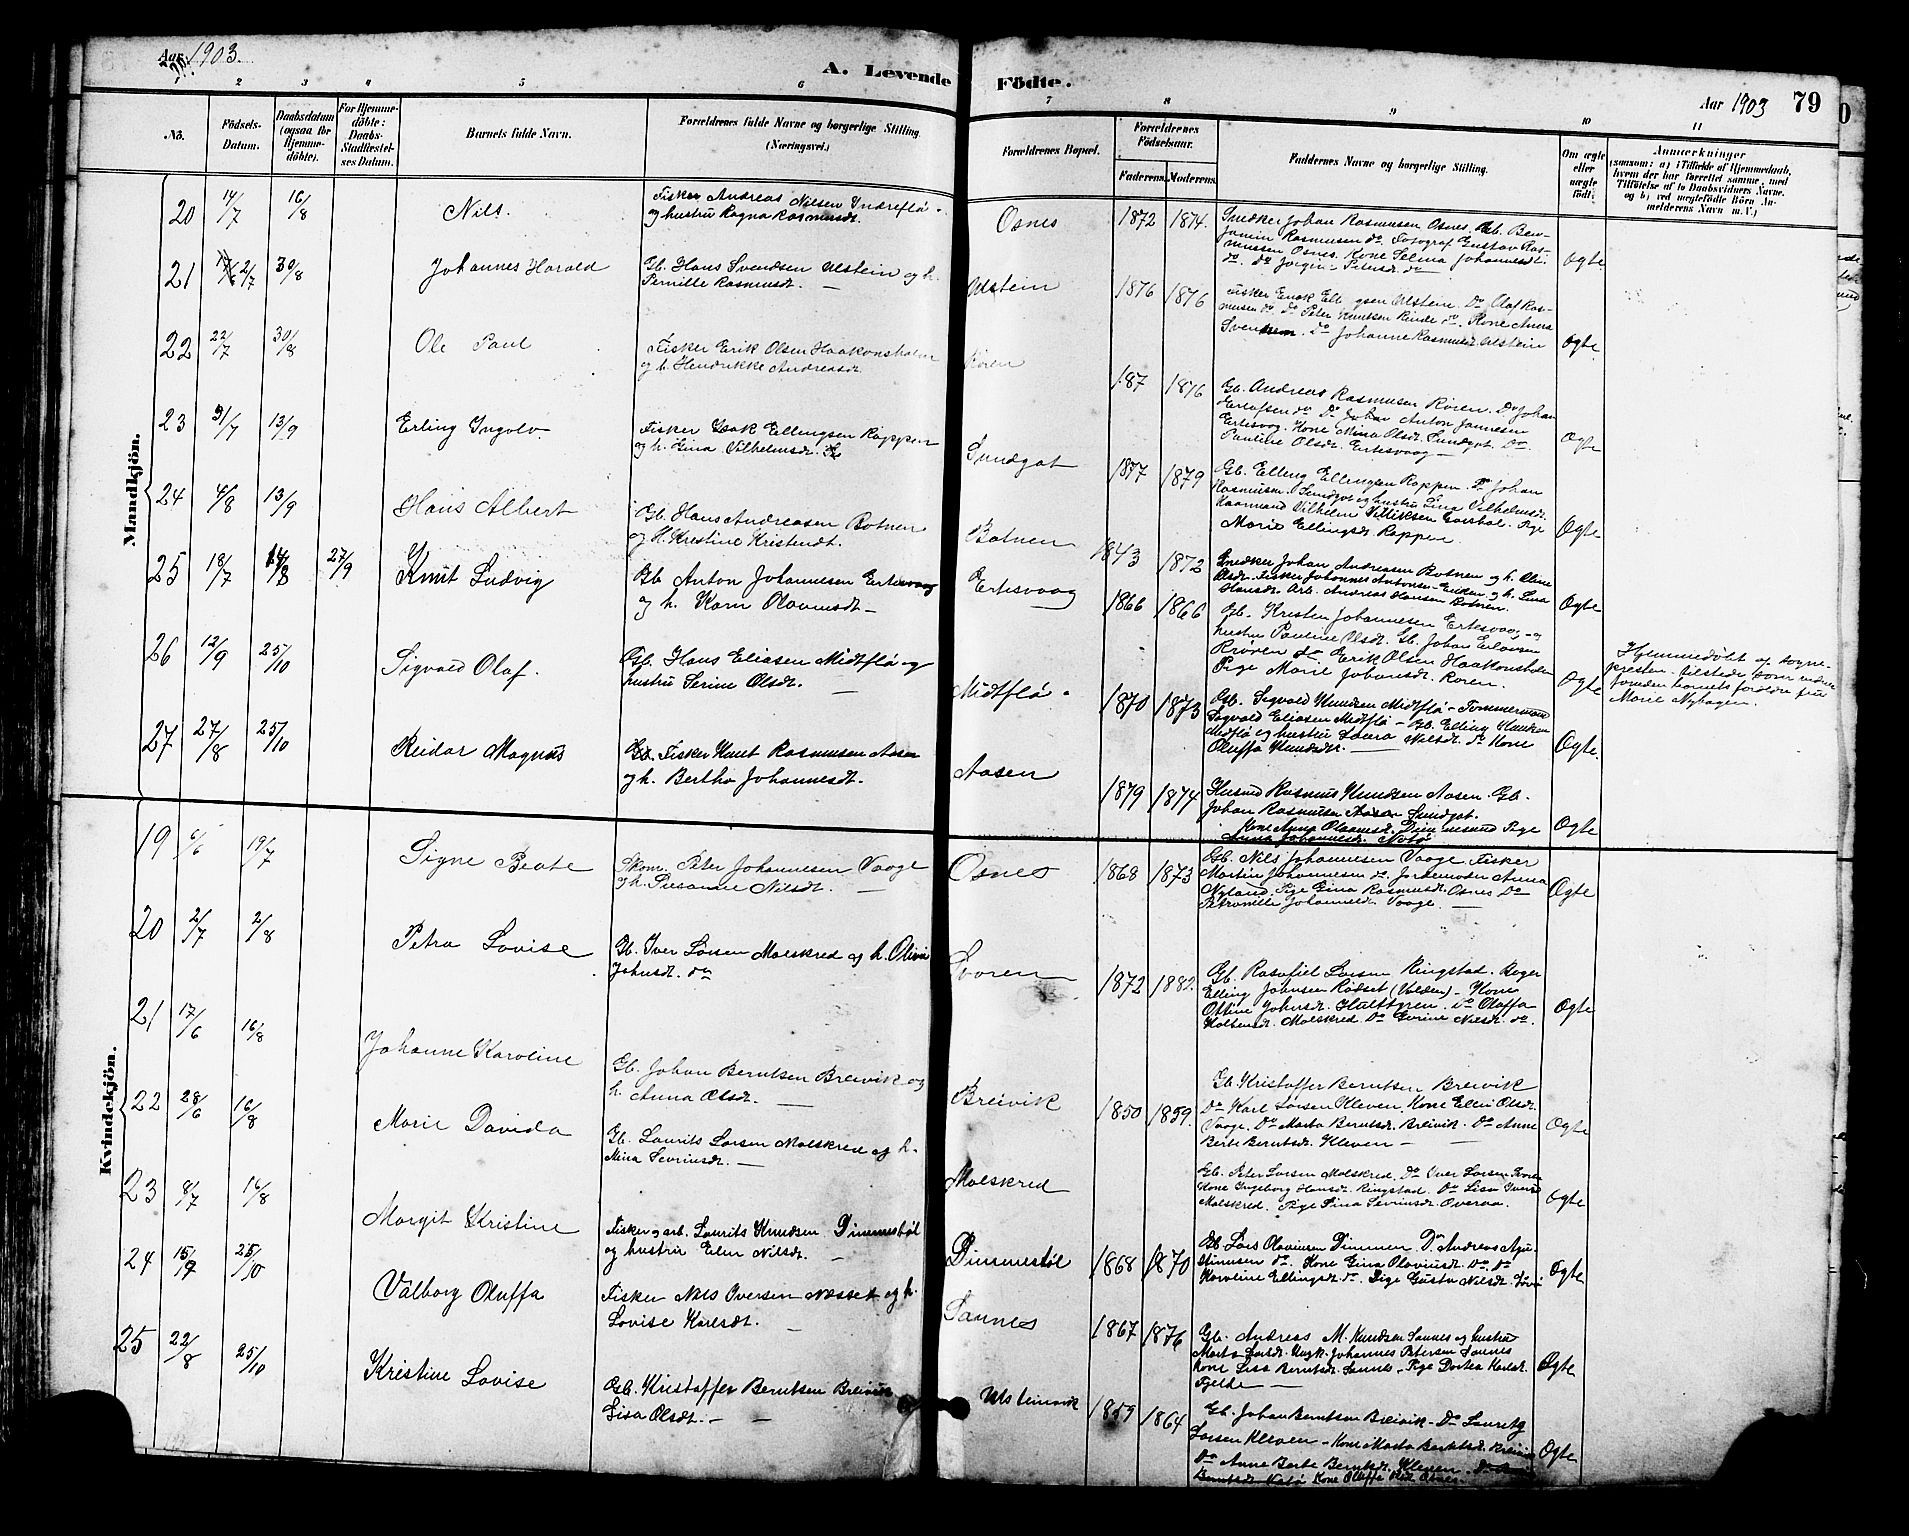 Aar 1903.
A. Levende Födte.
Aar 1903 79
1 2 3 4 5 6 7 8 9 10 11
No.
Födsels-Datum.
Daabsdatum (ogsaa for Hjemme-döbte).
For Hjemme-döbte: Daabs-Stadfæstel-ses Datum.
Barnets fulde Navn.
Forældrenes fulde Navne og borgerlige Stilling.
(Næringsvei.)
Forældrenes Bopæl.
Forældrenes Födselsaar.
Faderens. Moderens.
Faddernes Navne og borgerlige Stilling.
Om ægte eller uægte födt.
Anmærkninger
(saasom: a) i Tilfælde af Hjemmedaab, hvem der har forrettet samme, med Tilföielse af to Daabsvidners Navne, og b) ved uægtefödte Börn An-melderens Navn m. V.)
Mandkjön.
20 14/7 16/8 Nils. Fisker Andreas Nilsen Indreflø
og hustru Ragna Rasmusdt.
Osnes 1872 1874.
Snedker Johan Rasmussen Osnes. Gb. Ben-
jamin Rasmussen do. Fotograf Gustav Ras-
mussen Osnes. Kone Selma Johannesdt.
do. do Jorgine Petersdt. do
Ægte
21 2/7 30/8 Johannes Harald Gb. Hans Svendsen Ulstein og h.
Pernille Rasmusdt.
Ulstein 1876 1876
Fisker Enok Ell gsen Ulstein. Do Olaf Ras-
musen do. do Peter Knutsen Rinde do. Kone Anna
Svendsen. Do Johanne Rasmusdt. Ulstein
Ægte
22 22/7 30/8 Ole Paul Fisker Erik Olsen Haakonsholm
og h. Hendrikke Andreasdt.
Røren 187 1876
Gb. Andreas Rasmusen Røren. Do Johan
Erlafsen do Do Johan Anton Jonnesen
Ertesvog. Kone Mina Olsdt. Sundgot. Do
Pauline Olsdt. Ertesvaag
Ægte
23 31/7 13/9 Erling Ingolv. Fisker Isak Ellingsen Rappen
og h. Gina Vilhelmsdt.
Sundgot 1877 1879
Gb. Elling Ellingsen Rappen. Do Johan
Rasmusen. Sundgot og hustru Lina Vilhelmsdt.
Marie Ellingsdt Rappen.
Ægte
24 4/8 13/9 Hans Albert Gb. Hans Andreasen Botnen
og H. Kristine Kristendt.
Botnen 1843 1872
Snedker Johan Andreasen Botnen og h. Oline
Olsdt. Fisker Johannes Antonsen Eiken og h. Lina
Hansdt. Arb. Andreas Hansen Botnen.
Ægte
25 18/7 14/8 27/9 Knut Ludvig Gb Anton Johannesen Ertesvaag
og h. Karn Olavinsdt
Ertesvaag 1866 1866
Gb. Kristen Johannesen Ertesvaag og
hustru Pauline Olsdt. Gb. Johan Erlavsen
Røren do Erik Olsen Haakonsholm
Pige Marie Johansdt. Roren.
Ægte
Hjemmedøbt af sogne-
presten. tilstede
foruden barnets foreldre fru
Marie Nybagen.
26 12/9 25/10 Sigvald Olaf. Gb. Hans Eliasen Midtflø og
hustru Serine Olsdt.
Midtflø 1870 1873
Gb. Sigvald Knudsen Midtflø Tømmermand
Sigvald Eliasen Midtflø Gb. Elling Knudsen
Midtflø og hustru Laura Nilsdt. do Kone
Oluffa Knudsdt.
Ægte
27 27/8 25/10 Reidar Magnus Fisker Knut Rasmusen Aasen
og h. Bertha Johannesdt.
Aasen 1879 1874
Husmd Rasmus Knudsen Aasen. Gb.
Johan Rasmussen Aasen Sundgot.
Kone Anna Olavusdt. Dimmesund Pige
Anna Johannesdt. Notø
Ægte
Kvindekjön.
19 6/6 19/7 Signe Beate Skom. Peter Johannesen Vaage
og h. Susanne Nilsdt.
Osnes 1868 1873
Gb. Nils Johannesen Vaage. Fisker
Martin Johannesen do. Jordemoder Anna
Nyland. Pige Gina Rasmusdt. Osnes Do
Petronille Johannesdt. Vaage.
Ægte
20 2/7 2/8 Petra Lovise Gb. Iver Larsen Molskred og h. Olivia
Johnsdt. do
Svoren 1872 1882.
Gb. Rasafiel Larsen Ringstad. Bager
Elling Johnsen Rødset (Volden). Kone
Ottine Johnsdt. Hultgren. do Oluffa
Kolbensdt. Molskred. Do Gurine Nilsdt. do.
Ægte
21 17/6 16/8 Johanne Karoline Gb. Johan Berntsen Breivik og
h. Anna Olsdt.
Breivik 1850 1859.
Gb Kristoffer Berntsen Breivik
Do Karl Larsen Kleven. Kone Ellen Olsdt.
Vaage. Do Marta Berntsdt. Breivik. Do Anne
Berte Berntsdt. Kleven
Ægte
22 28/6 16/8 Marie Davida Gb. Laurits Larsen Molskred og h.
Mina Sevrinsdt.
Molskred
Gb. Peter Larsen Molskred. Do Iver Larsen
Kone Ingeborg Hansdt. Ringstad. Do Lisa Ivers
Molskred. Pige Pina Sevrinsdt. Overaa.
Ægte
23 8/7 16/8 Margit Kristine Fisker og arb. Laurits Knudsen Dimmestøl
og hustru Elen Nilsdt.
Dimmestøl 1868 1870
Gb Lars Olavisen Dimmen. Do Andreas Agu-
stinusen do. Kone Gina Olaviusdt. Do do
Karoline Ellingsdt. do. Pige Gusta Nilsdt.
Ægte
24 15/9 25/10 Valborg Oluffa Fisker Nils Iversen Næsset og h.
Lovise Karlsdt.
Saunes 1867 1876
Gb. Andreas M. Knudsen Saunes og hustru
Marta Larsdt. Ungk. Johannes Petersen Saunes
Kone Lisa Berntsdt. Saunes. Pige Dortea Karlsdt.
Fjelde
Ægte
25 22/8 25/10 Kristine Lovise Gb. Kristoffer Berntsen Breivik
Lisa Olsdt.
Ulsteinvik 1859 1864
Gb. Johan Berntsen Breivik. Do Lauritz
Larsen Kleven. Kone Marta Berntsdt. Breivik
Do Anne Berte Berntsdt. Kleven.
Berntsdt. Notø Kone Oluffa Olsdt. Osnes.
Ægte